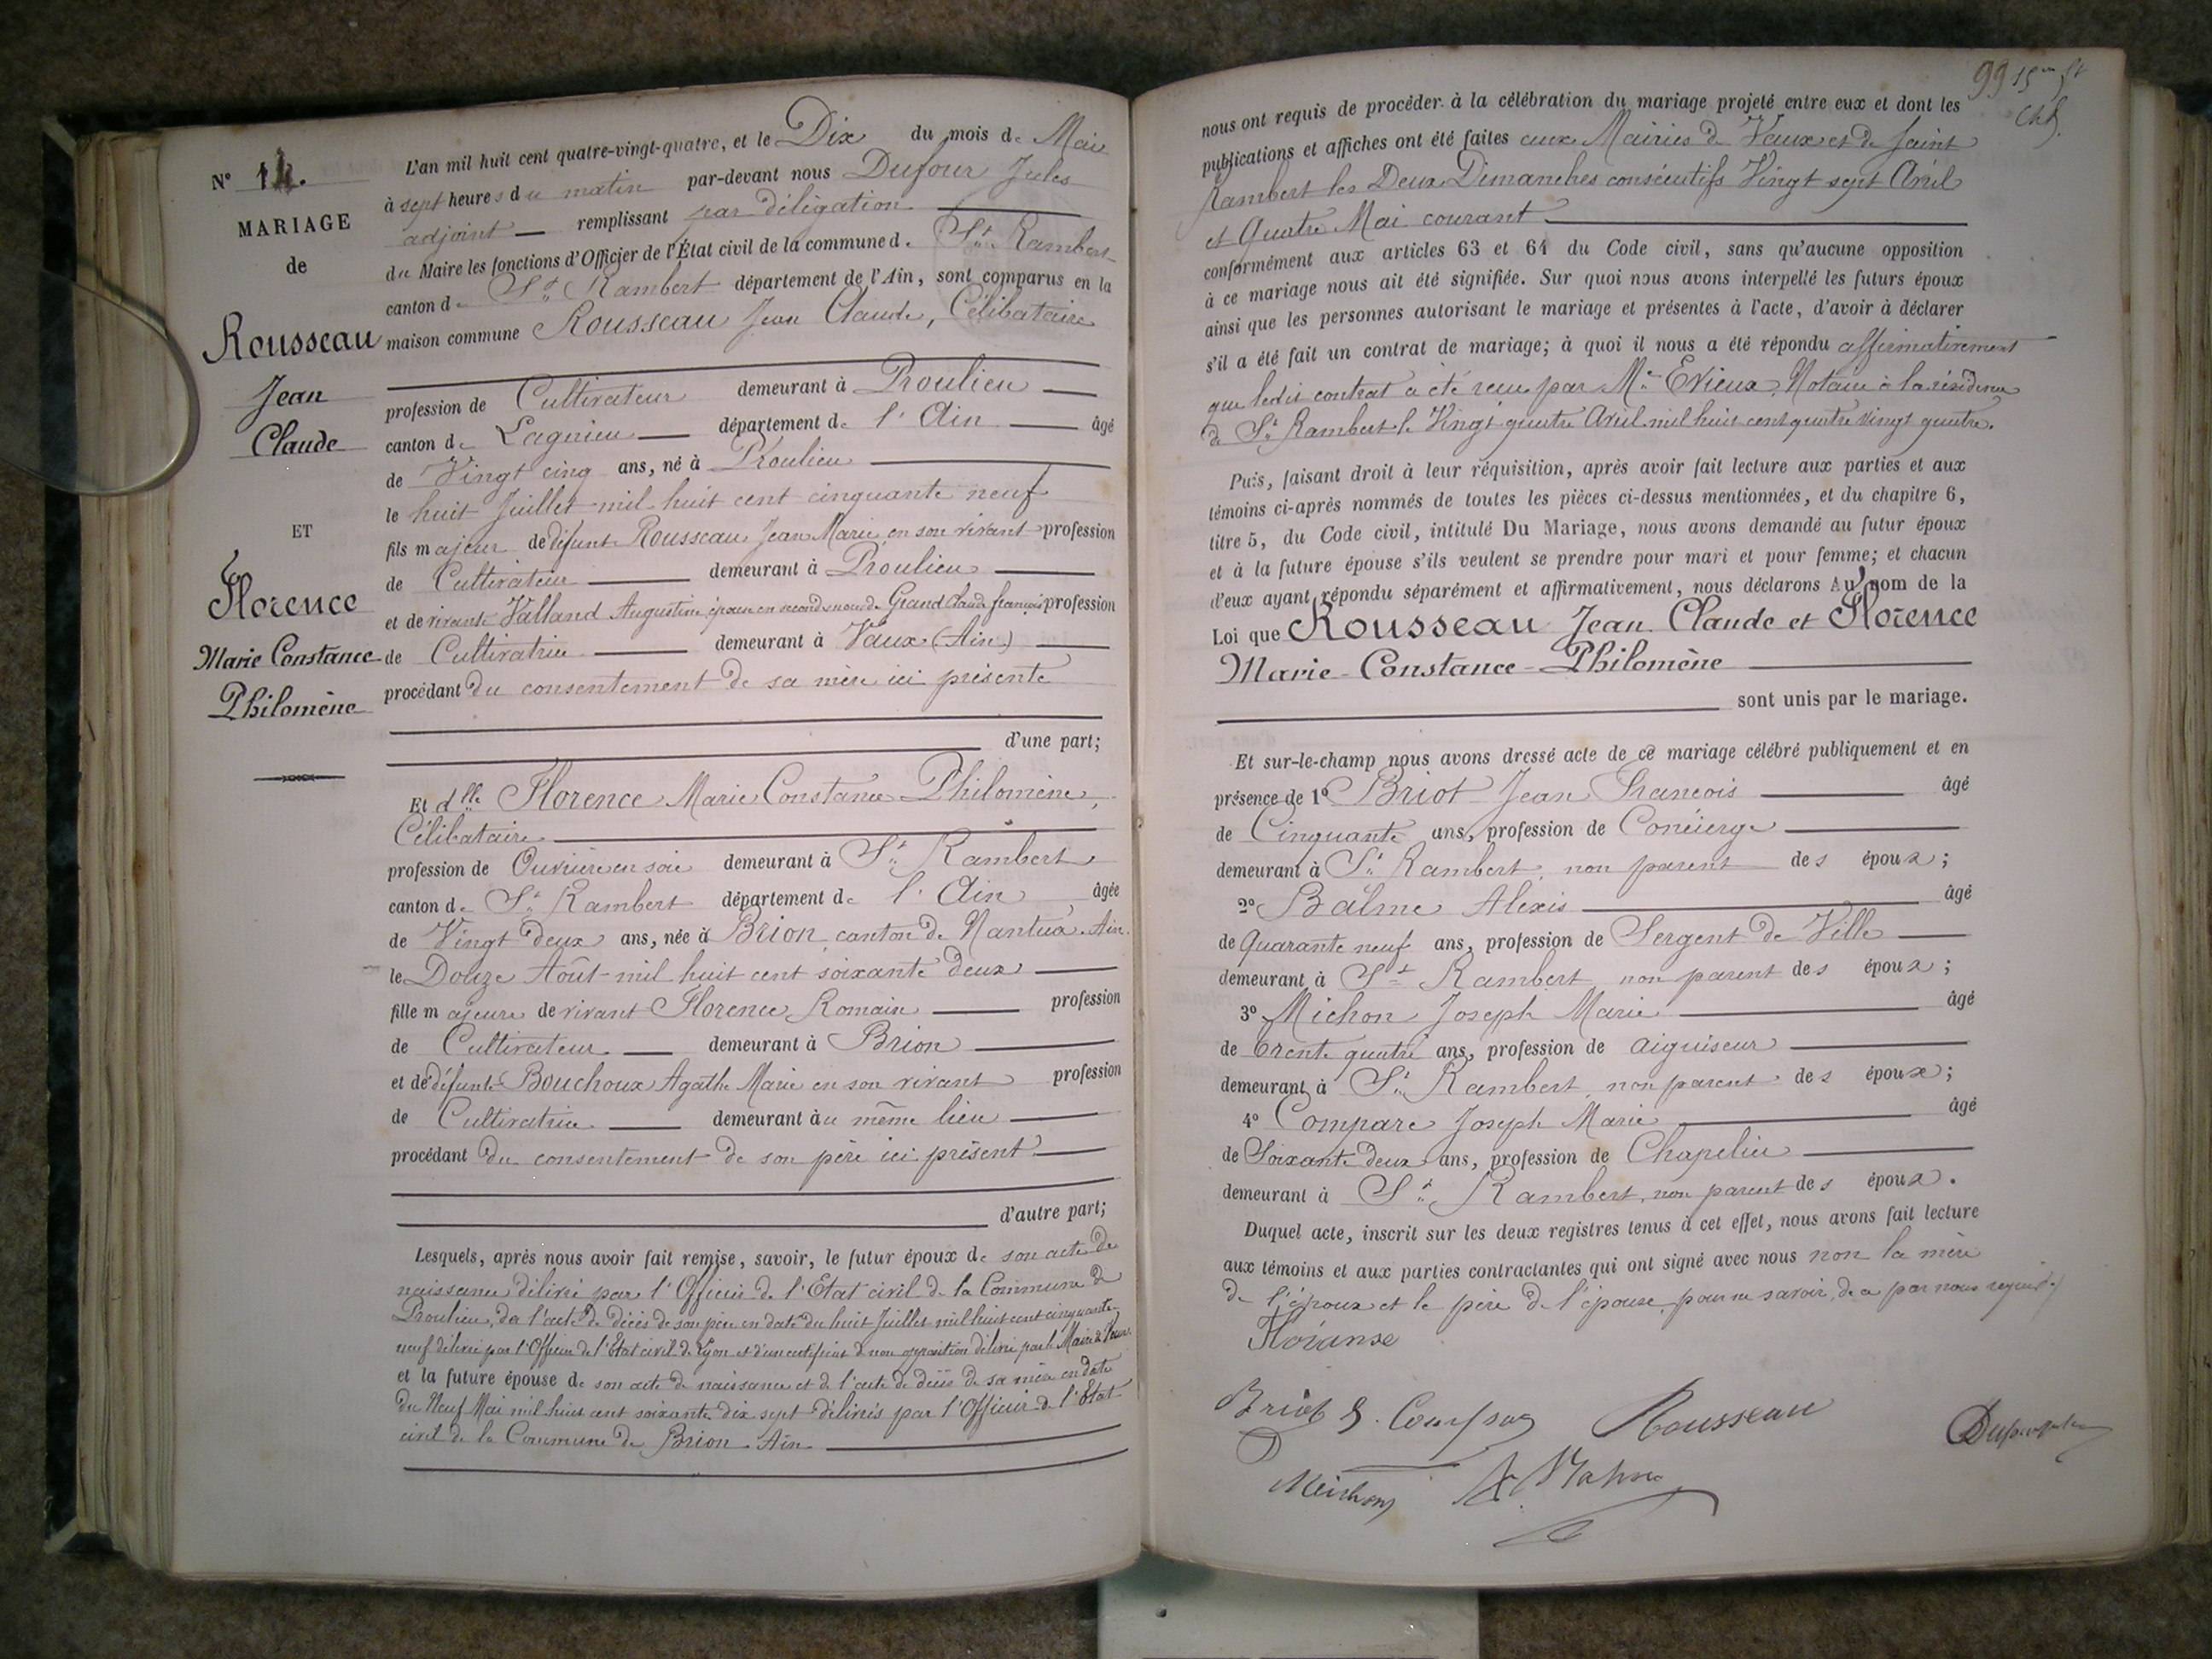 N° 14.
MARIAGE
de
Rousseau
Jean
Claude
ET
Florence
Marie Constance
Philomène
L'an mil huit cent quatre-vingt-quatre, et le Dix du mois de Mai
à sept heures du matin par-devant nous Dufour Jules
adjoint remplissant par délégation
du Maire les fonctions d'Officier de l'État civil de la commune de St Rambert
canton de St Rambert département de l'Ain, sont comparus en la
maison commune Rousseau Jean Claude, Célibataire
profession de Cultivateur demeurant à Proulieu
canton de Lagnieu département de l'Ain âgé
de Vingt cinq ans, né à Proulieu
le huit Juillet mil huit cent cinquante neuf
fils majeur de défunt Rousseau Jean Marie en son vivant profession
de Cultivateur demeurant à Proulieu
et de vivante Valland Augustine épouse en secondes noces de Grand Claude françois profession
de Cultivatrice demeurant à Vaux (Ain)
procédant du consentement de sa mère ici présente
d'une part;
Et dlle Florence Marie Constance Philomène,
Célibataire
profession de Ouvrière en soie demeurant à St Rambert
canton de St Rambert département de l'Ain âgée
de Vingt deux ans, née à Brion, canton de Nantua. Ain.
le Douze Août mil huit cent soixante deux
fille majeure de vivant Florence Romain profession
de Cultivateur demeurant à Brion
et de défunte Bouchoux Agathe Marie en son vivant profession
de Cultivatrice demeurant au même lieu
procédant du consentement de son père ici présent
d'autre part;
Lesquels, après nous avoir fait remise, savoir, le futur époux de son acte de
naissance délivré par l'Officier de l'Etat civil de la Commune de
Proulieu, de l'acte de décès de son père en date du huit Juillet mil huit cent cinquante
neuf délivré par l'Officier de l'Etat civil de Lyon et d'un certificat de non opposition délivré par le Maire de Vaux
et la future épouse de son acte de naissance et de l'acte de décès de sa mère en date
du Neuf Mai mil huit cent soixante dix sept délivrés par l'Officier de l'Etat
civil de la Commune de Brion. Ain
99 15
nous ont requis de procéder à la célébration du mariage projeté entre eux et dont les
publications et affiches ont été faites aux Mairies de Vaux et de Saint
Rambert les Deux Dimanches consécutifs Vingt sept Avril
et Quatre Mai courant
conformément aux articles 63 et 64 du Code civil, sans qu'aucune opposition
à ce mariage nous ait été signifiée. Sur quoi nous avons interpellé les futurs époux
ainsi que les personnes autorisant le mariage et présentes à l'acte, d'avoir à déclarer
s'il a été fait un contrat de mariage; à quoi il nous a été répondu affirmativement
que ledit contrat a été reçu par Me Evieux, Notaire à la résidence
de St Rambert le Vingt quatre Avril mil huit cent quatre vingt quatre.
Puis, faisant droit à leur réquisition, après avoir fait lecture aux parties et aux
témoins ci-après nommés de toutes les pièces ci-dessus mentionnées, et du chapitre 6,
titre 5, du Code civil, intitulé Du Mariage, nous avons demandé au futur époux
et à la future épouse s'ils veulent se prendre pour mari et pour femme; et chacun
d'eux ayant répondu séparément et affirmativement, nous déclarons Au nom de la
Loi que Rousseau Jean Claude et Florence
Marie-Constance-Philomène
sont unis par le mariage.
Et sur-le-champ nous avons dressé acte de ce mariage célébré publiquement et en
présence de 1° Briot Jean Francois âgé
de Cinquante ans, profession de Concierge
demeurant à St Rambert, non parent des époux;
2° Balme Alexis âgé
de Quarante neuf ans, profession de Sergent de Ville
demeurant à St Rambert non parent des époux;
3° Michon Joseph Marie âgé
de trente quatre ans, profession de aiguiseur
demeurant à St Rambert, non parent des époux;
4° Compare Joseph Marie âgé
de Soixante deux ans, profession de Chapelier
demeurant à St Rambert, non parent des époux.
Duquel acte, inscrit sur les deux registres tenus à cet effet, nous avons fait lecture
aux témoins et aux parties contractantes qui ont signé avec nous non la mère
de l'époux et le père de l'épouse, pour ne savoir, de ce par nous requis
Floranse
Briot Rousseau
Michon